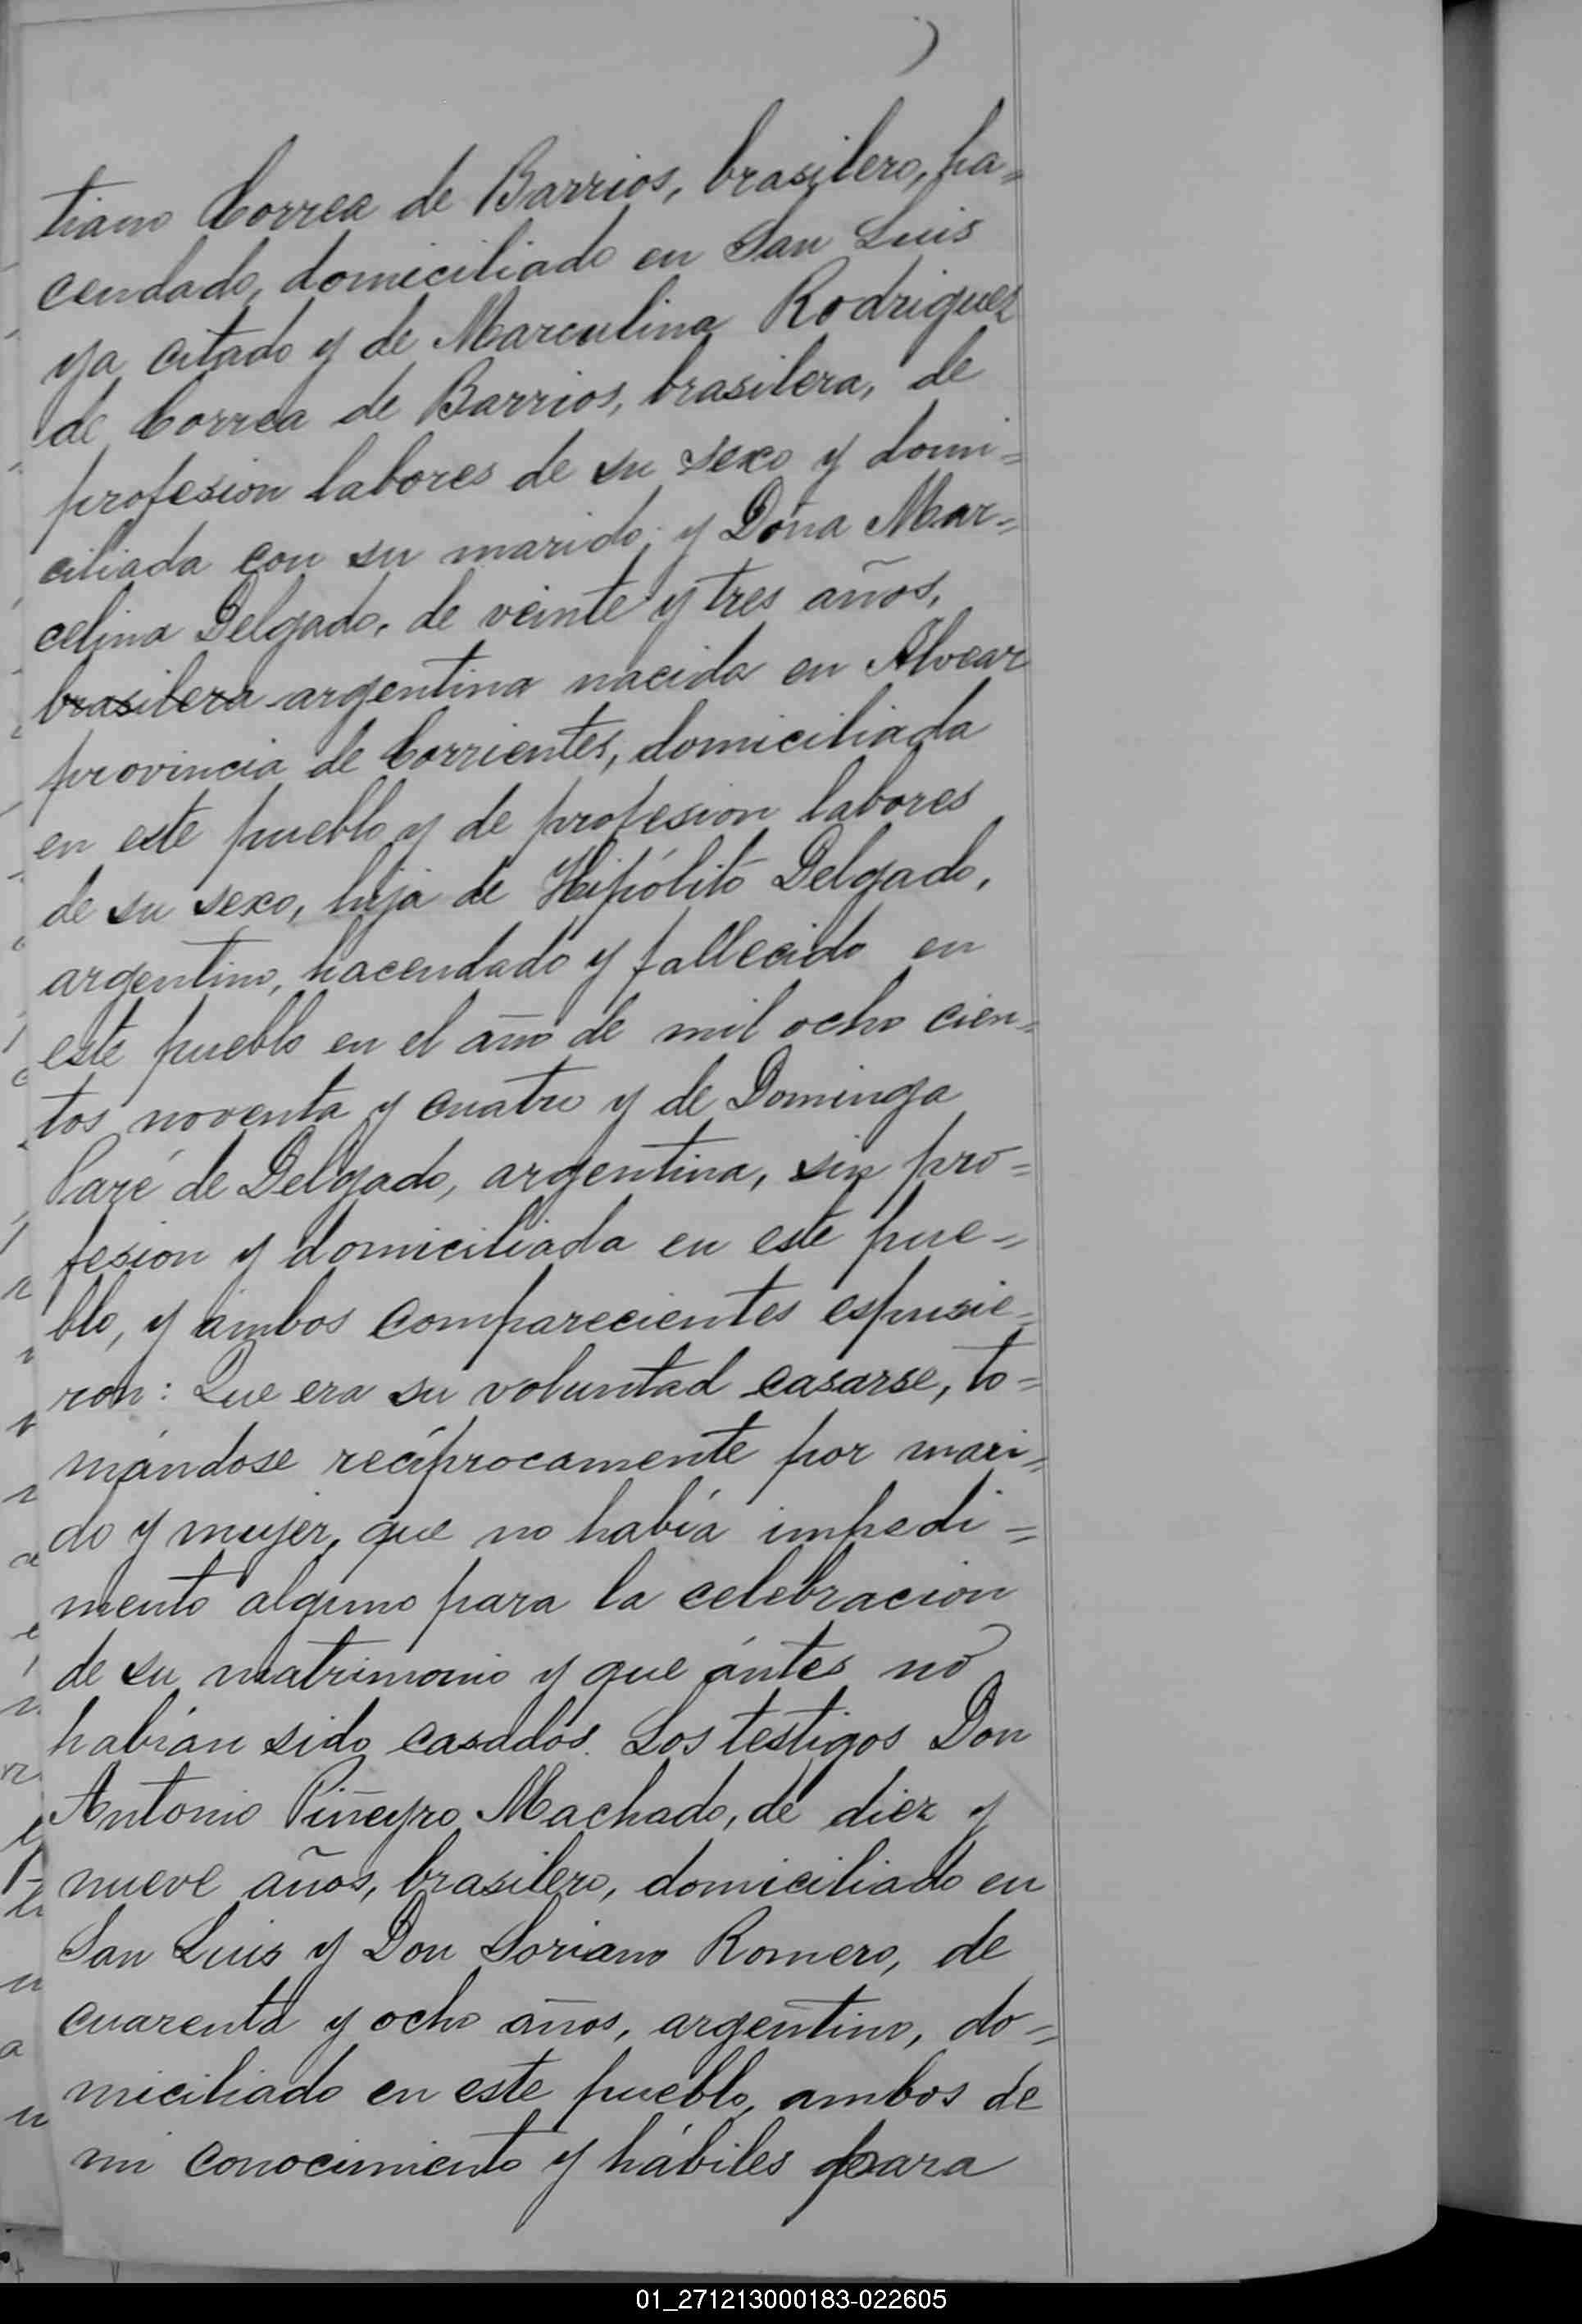 tiano Correa de Barrios, brasilero, ha=
cendado, domiciliado en San Luis
ya citado y de Marculina Rodriguez
de Correa de Barrios, brasilera, de
profesion labores de su sexo y domi=
ciliada con su marido; y Doña Mar=
celina Delgado, de veinte y tres años,
brasilera argentina nacida en Alvear
provincia de Corrientes, domiciliada
en este pueblo y de profesion labores
de su sexo, hija de Hipólito Delgado,
argentino, hacendado y fallecido en
este pueblo en el año de mil ocho cien=
tos noventa y cuatro y de Dominga
Paré de Delgado, argentina, sin pro=
fesion y domiciliada en este pue=
blo, y ambos comparecientes espusie=
ron: Que era su voluntad casarse, to=
mándose recíprocamente por mari=
do y mujer, que no había impedi=
mento alguno para la celebracion
de su matrimonio y que ántes no
habían sido casados. Los testigos Don
Antonio Piñeyro Machado, de diez y
nueve años, brasilero, domiciliado en
San Luis y Don Soriano Romero, de
cuarenta y ocho años, argentino, do=
miciliado en este pueblo, ambos de
mi conocimiento y hábiles para
01_271213000183-022605